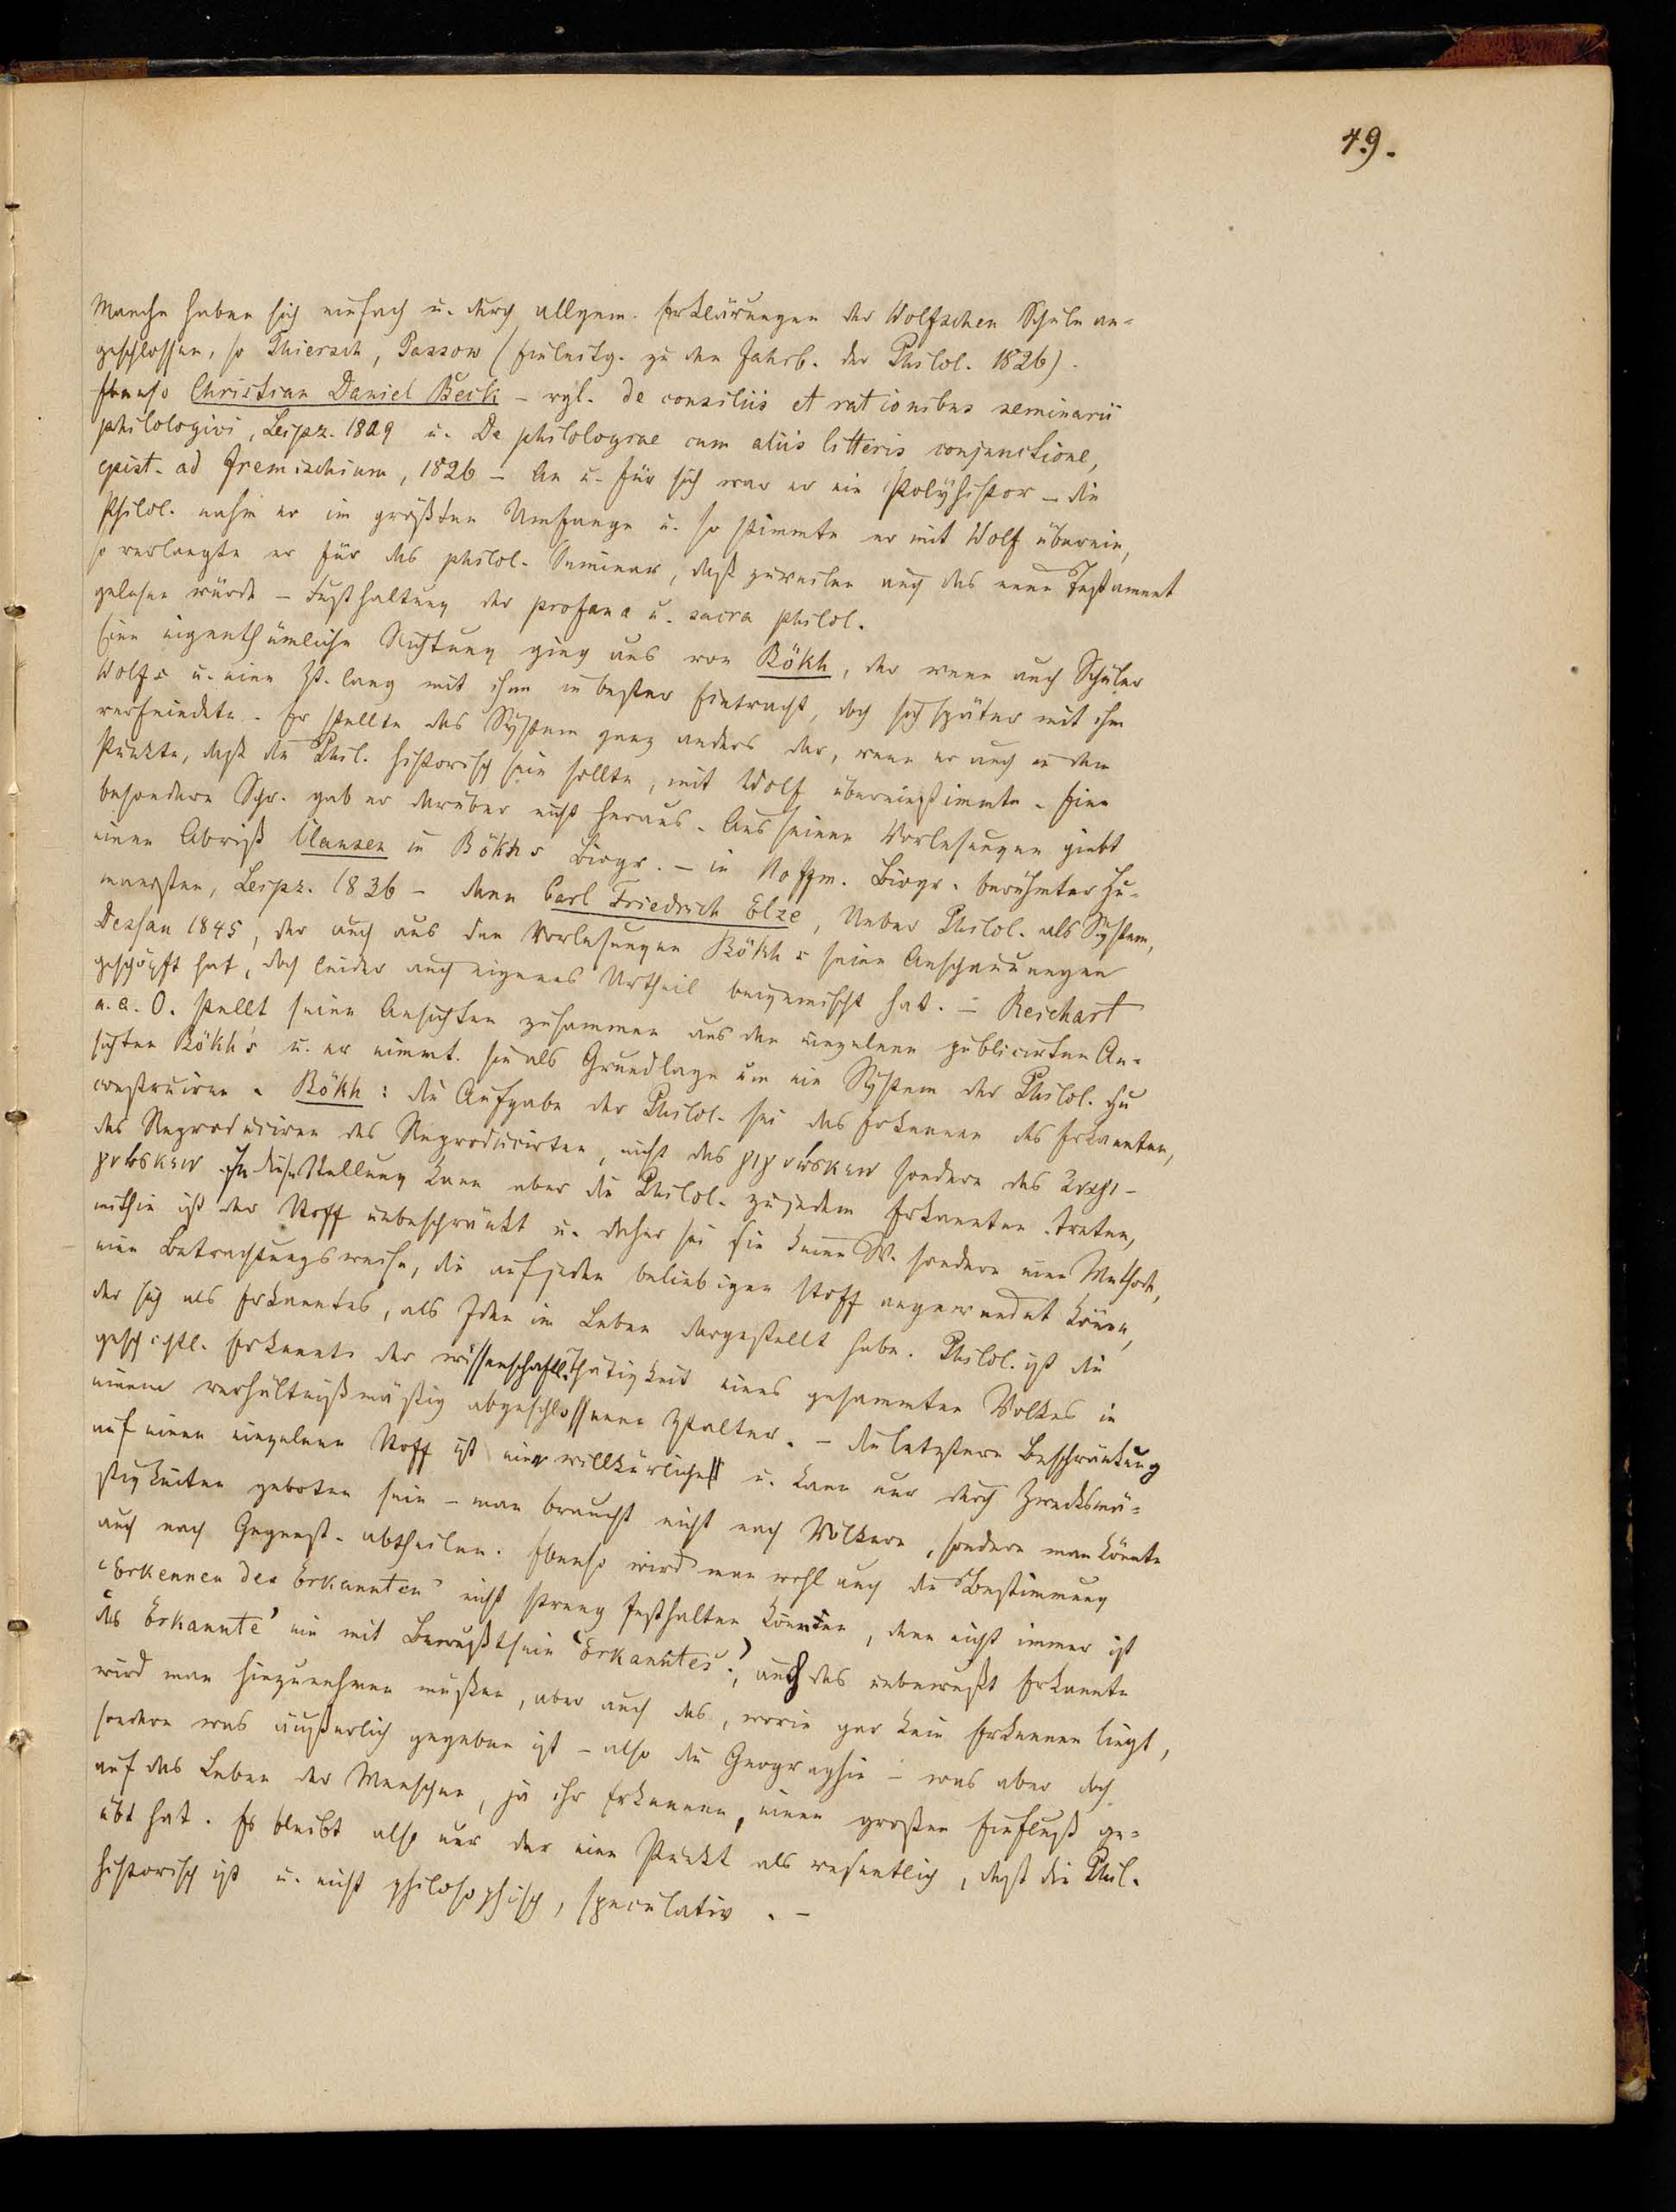 49.
Manche haben sich einfach u. durch allgem. Erklärungen der Wolfschen Schule an-
geschlossen, so Thiersch, Passow (Einleitg. zu den Jahrb. der Philol. 1826).
Ebenso Christian Daniel Beck – vgl. de consiliis et rationibus seminarii
philologici, Leipz. 1809 u. De philologiae cum aliis litteris conjunctione,
epist. ad 1826 – An u. für sich war er ein Polyhistor – die
Philol. nahm er im größten Umfange u. so stimmte er mit Wolf überein,
so verlangte er für das philol. Seminar, daß zuweilen auch das neue Testament
gelesen würde – Festhaltung der profana u. sacra philol.
Eine eigenthümliche Richtung ging aus von Bökh, der wenn auch Schüler
Wolfs u. eine Zt. lang mit ihm in bester Eintracht, doch sich später mit ihm
verfeindete. Er stellte das System ganz anders dar, wenn er auch in dem
Punkte, daß die Phil. historisch sein sollte, mit Wolf übereinstimmte. Eine
besondere Schr. gab er darüber nicht heraus. Aus seinen Vorlesungen giebt
einen Abriß Clausen in Bökhs Biogr. – in Hoffm. Biogr. berühmter Hu-
manisten, Leipz. 1836 – dann Carl Friedrich Elze, Ueber Philol. als System,
Dessau 1845, der auch aus den Vorlesungen Bökhs seine Anschauungen
geschöpft hat, doch leider auch eigenes Urtheil beigemischt hat. – Reichart
a. a. O. stellt seine Ansichten zusammen aus den einzelnen publicirten An-
sichten Bökh's u. er nimmt sie als Grundlage um ein System der Philol. zu
construiren. Bökh: die Aufgabe der Philol. sei das Erkennen des Erkannten,
das Reproduciren des Reproducirten, nicht das γιγνώσκειν sondern das ἀναγι-
γνώσκειν. In diese Stellung kann aber die Philol. zu jedem Erkannten treten,
mithin ist der Stoff unbeschränkt u. daher sei sie keine W. sondern eine Methode,
eine Betrachtungsweise, die auf jeden beliebigen Stoff angewendet könne,
der sich als Erkanntes, als Idee im Leben dargestellt habe. Philol. ist die
geschichtl. Erkennts der wissenschaftl. Thätigkeit eines gesammten Volkes in
einem verhältnißmäßig abgeschlossenen Ztalter. – die letztere Beschränkung
auf einen einzelnen Stoff ist nur willkürlich u. kann nur durch Zweckmä-
ßigkeiten geboten sein – man braucht nicht nach Völkern, sondern man könnte
auch nach Gegenst. abtheilen. Ebenso wird man wohl auch die Bestimmung
‘Erkennen des Erkannten’ nicht streng festhalten können, denn nicht immer ist
das Erkannte’ ein mit Bewußtsein ‘Erkanntes’; auch das unbewußt Erkannte
wird man hinzunehmen müßen, aber auch das, worin gar kein Erkennen liegt,
sondern was äußerlich gegeben ist – also die Geographie – was aber doch
auf das Leben der Menschen, ja ihr Erkennen, einen großen Einfluß ge-
übt hat. Es bleibt also nur der eine Punkt als wesentlich, daß die Phil.
historisch ist u. nicht philosophisch, speculativ. –